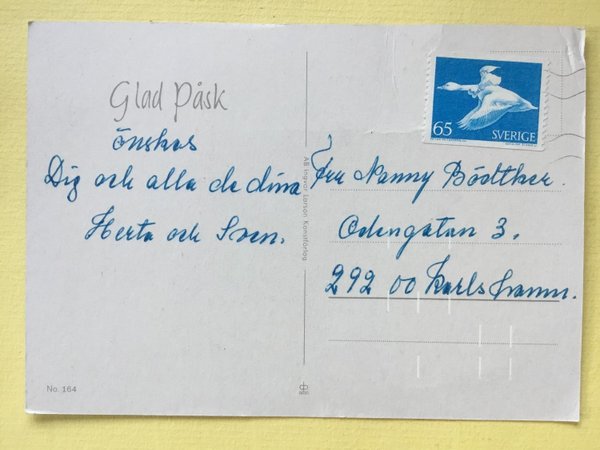 Glad Påsk
önskas
Dig och alla de dina
Herta och Sven.
No. 164
AB Ingvar Larson, Konstförlag
65
SVERIGE
Fru Nanny Bödtker.
Odengatan 3.
292 00 Karlshamn.